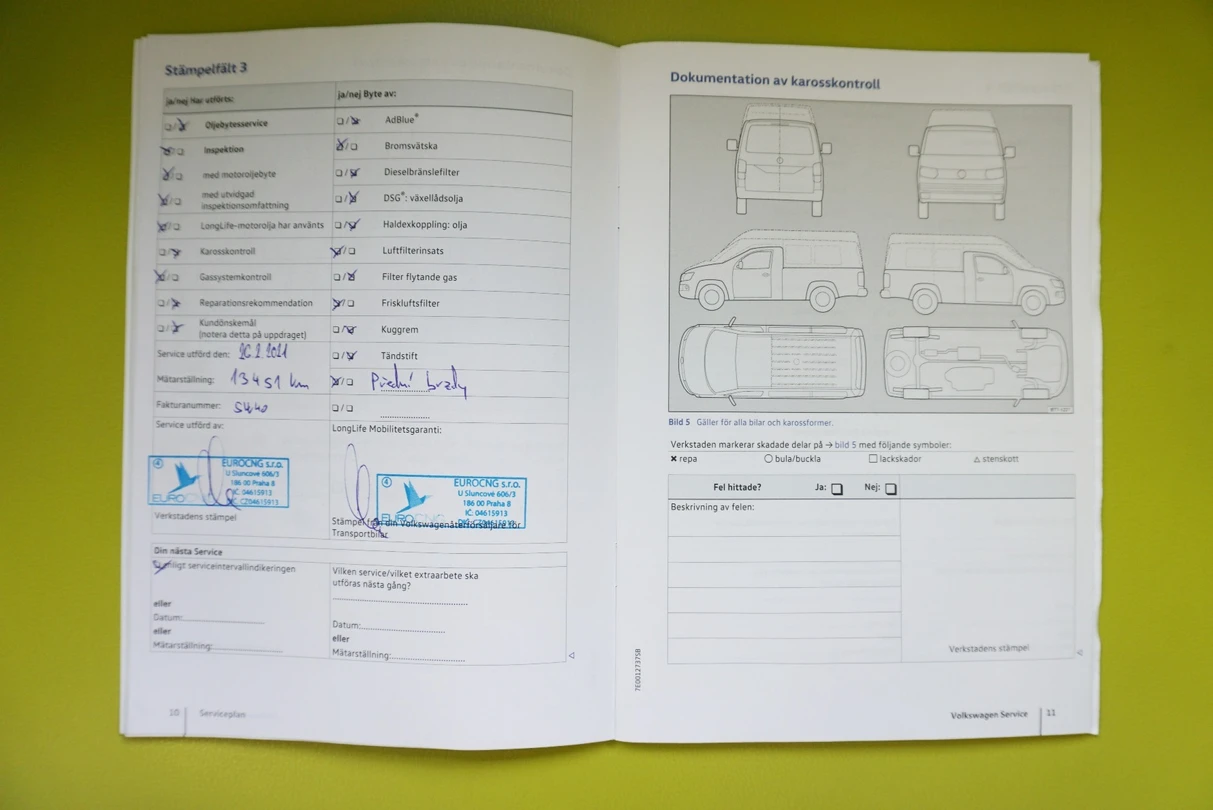 Stämpelfält 3
ja/nej Har utförts:
ja/nej Byte av:
Oljebytesservice
AdBlue®
Inspektion
Bromsvätska
med motoroljebyte
Dieselbränslefilter
med utvidgad
inspektionsomfattning
DSG®: växellådsolja
LongLife-motorolja har använts
Haldexkoppling: olja
Karosskontroll
Luftfilterinsats
Gassystemkontroll
Filter flytande gas
Reparationsrekommendation
Friskluftsfilter
Kundönskemål
(notera detta på uppdraget)
Kuggrem
Service utförd den:
Tändstift
Mätarställning: 13451 km
Přední brzdy
Fakturanummer: 5440
Service utförd av:
LongLife Mobilitetsgaranti:
④ EUROCNG s.r.o.
U Sluncové 606/3
186 00 Praha 8
IČ: 04615913
CZ04615913
EUROCNG
Verkstadens stämpel
④ EUROCNG s.r.o.
U Sluncové 606/3
186 00 Praha 8
IČ: 04615913
EUROCNG
Stämpel från din Volkswagenåterförsäljare för
Transportbilar
Din nästa Service
Enligt serviceintervallindikeringen
eller
Datum:
eller
Mätarställning:
Vilken service/vilket extraarbete ska
utföras nästa gång?
Datum:
eller
Mätarställning:
10 Serviceplan
Dokumentation av karosskontroll
Bild 5 Gäller för alla bilar och karossformer.
Verkstaden markerar skadade delar på → bild 5 med följande symboler:
× repa ○ bula/buckla □ lackskador △ stenskott
Fel hittade? Ja: Nej:
Beskrivning av felen:
Verkstadens stämpel
7E0012737SB
Volkswagen Service 11